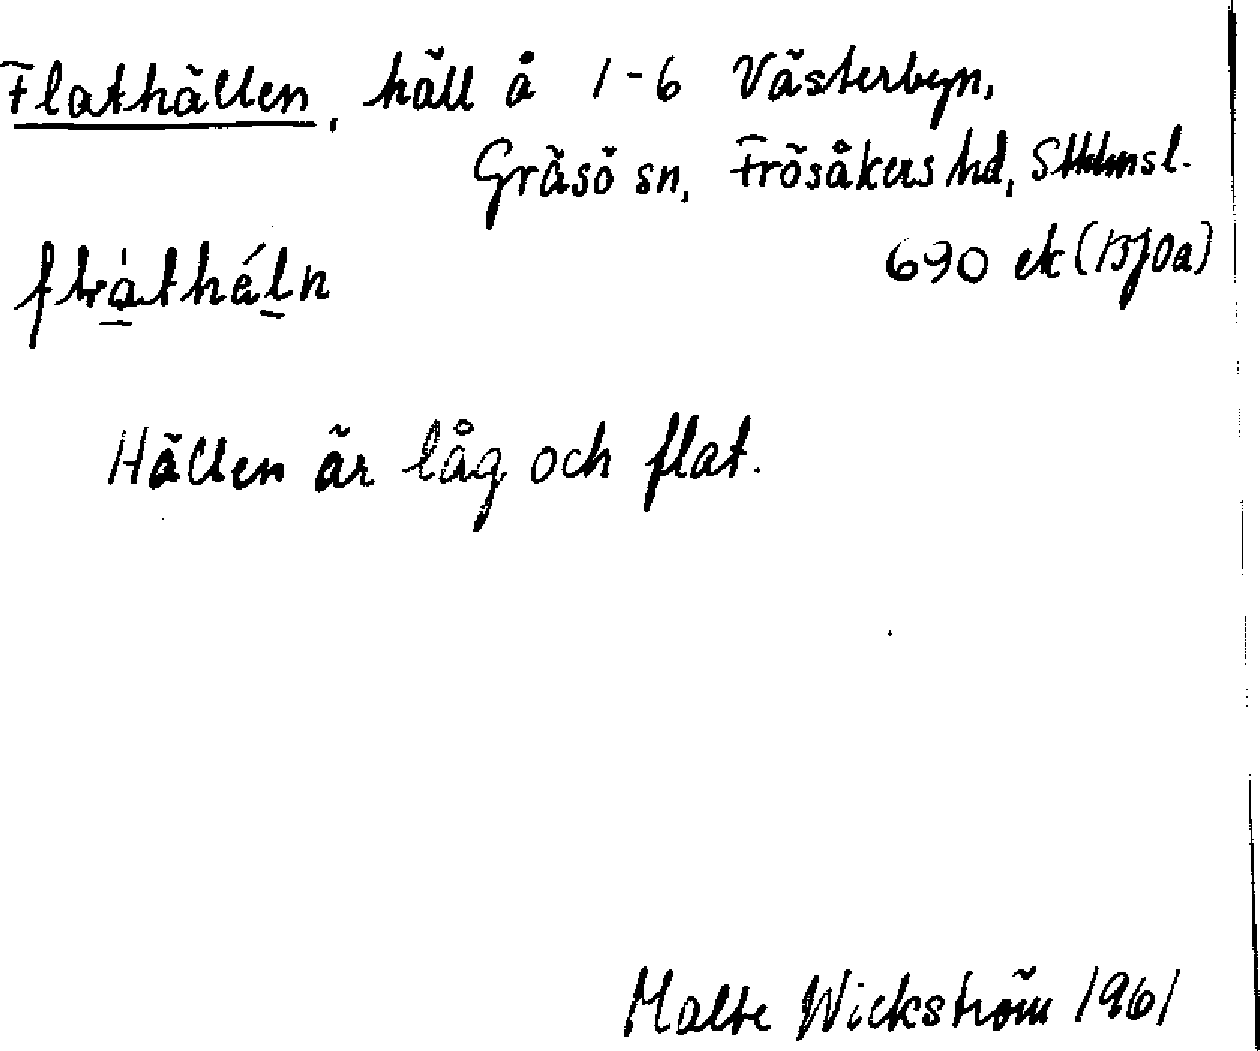 Flathällen, häll å 1-6 Västerbyn,
Gräsö sn, Frösåkers hd, Sthlmsl.
690 ek (BJ0a)
Hällen är låg och flat.
Malte Wickström 1961